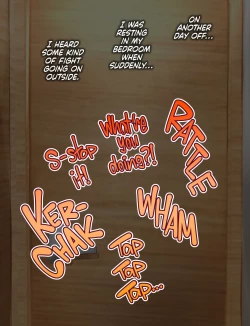 ON
ANOTHER
DAY OFF...
I WAS
RESTING
IN MY
BEDROOM
WHEN
SUDDENLY...
I HEARD
SOME KIND
OF FIGHT
GOING ON
OUTSIDE.
RATTLE
What're
you
doing?!
S-stop
it!
WHAM
KER-
CHAK
TOP
TOP
TOP...